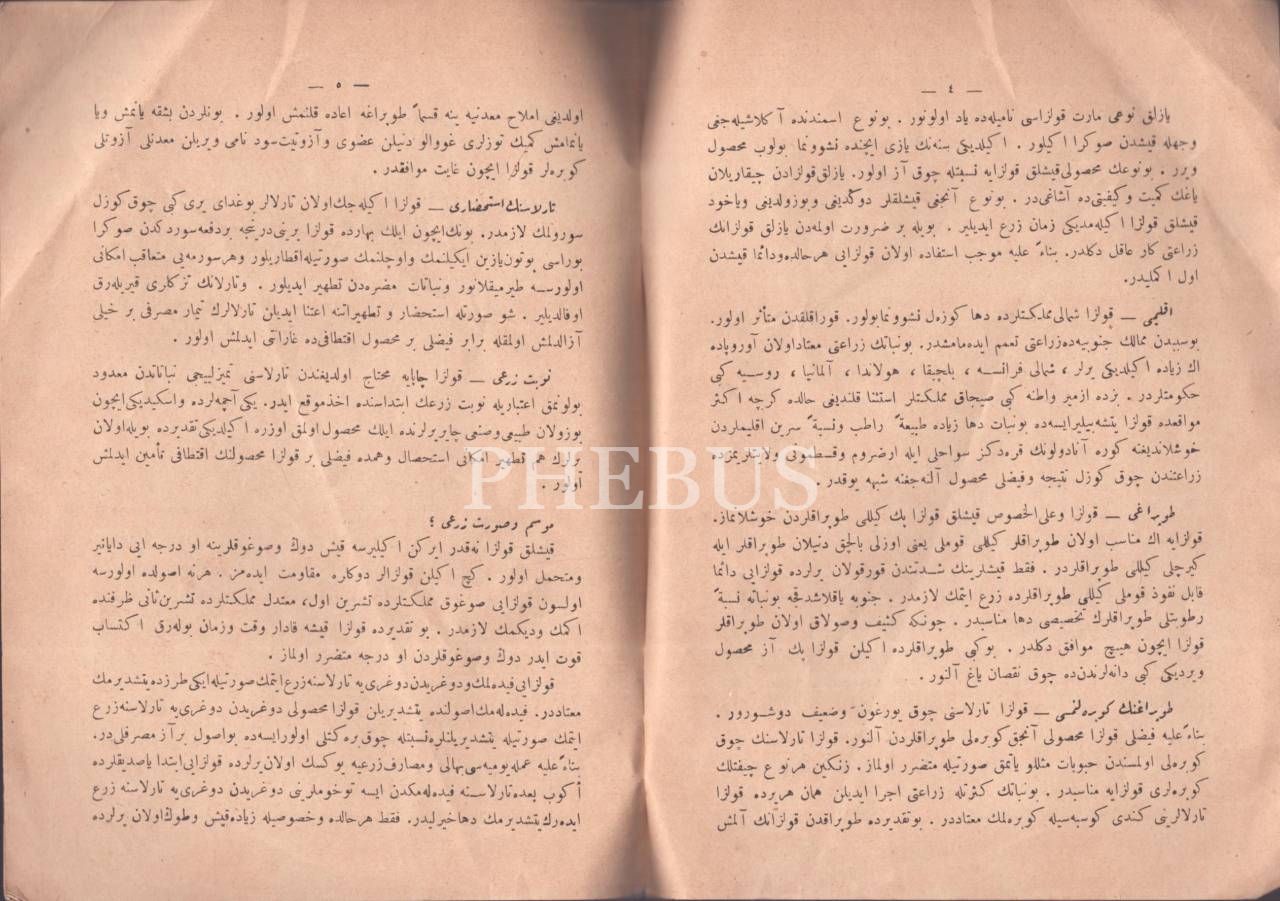 — ٤ —
يازلق نوعى مارت قولزاسى ناميله‌ده ياد اولونور . بونوع اسمندنده آكلاشيله‌جغى
وجهله قيشدن صوكرا اكيلور . اكيلديكى سنه‌نك يازى ايچنده نشوونما بولوب محصول
ويرر . بونوعك محصولى قيشلق قولزايه نسبتله چوق آز اولور. يازلق قولزادن چيقاريلان
ياغك كميت وكيفيتى‌ده آشاغى‌در . بونوع آنجق قيشلقلر دوكديغى وبوزولديغى وياخود
قيشلق قولزا اكيله‌مديكى زمان زرع ايديلير . بويله بر ضرورت اولمه‌دن يازلق قولزانك
زراعتى كار عاقل دكلدر. بناءً عليه موجب استفاده اولان قولزايى هرحالده‌ودائما قيشدن
اول اكمليدر.
اقليمى — قولزا شمالى مملكتلرده دها كوزه‌ل نشوونمابولور. قوراقلقدن متأثر اولور.
بوسببدن ممالك جنوبيه‌ده‌زراعتى تعمم ايده‌مامشدر. بونباتك زراعتى معتاداولان آوروپاده
اك زياده اكيلديكى يرلر ، شمالى فرانسه ، بلچيقا ، هولاندا ، آلمانيا ، روسيه كبى
حكومتلردر . بزده ازمير واطنه كبى صيجاق مملكتلر استثنا قلنديغى حالده كرچه اكثر
مواقعده قولزا يتشه‌بيليرايسه‌ده بونبات دها زياده طبيعةً راطب ونسبةً سرين اقليملردن
خوشلانديغنه كوره آنادولونك قره‌دكز سواحلى ايله ارضروم وقسطمونى ولايتلريمزده
زراعتندن چوق كوزل نتيجه وفيضلى محصول آلنه‌جغنه شبهه يوقدر .
طوپراغى — قولزا وعلى‌الخصوص قيشلق قولزا پك كيللى طوپراقلردن خوشلانماز.
قولزايه اك مناسب اولان طوپراقلر كيللى قوملى يعنى اوزلى بالچق دنيلان طوپراقلر ايله
كيرجلى كيللى طوپراقلردر . فقط قيشلرينك شدتندن قورقولان يرلرده قولزايى دائما
قابل نفوذ قوملى كيللى طوپراقلرده زرع ايتمك لازمدر . جنوبه ياقلاشدقجه بونباته نسبةً
رطوبتلى طوپراقلرك تخصيصى دها مناسبدر . چونكه كثيف وصولاق اولان طوپراقلر
قولزا ايچون هيچ موافق دكلدر . بوكبى طوپراقلرده اكيلن قولزا پك آز محصول
ويرديكى كبى دانه‌لرندن‌ده چوق نقصان ياغ آلنور .
طوپراغنك كوبره‌لنمسى — قولزا تارلاسنى چوق يورغون وضعيف دوشورور .
بناءً عليه فيضلى قولزا محصولى آنجق كوبره‌لى طوپراقلردن آلنور. قولزا تارلاسنك چوق
كوبره‌لى اولمسندن حبوبات مثللو ياتمق صورتيله متضرر اولماز . زنكين هرنوع چيفتلك
كوبره‌لرى قولزايه مناسبدر . بونباتك كثرتله زراعتى اجرا ايديلن همان هريرده قولزا
تارلالرينى كندى كوسبه‌سيله كوبره‌لمك معتاددر . بوتقديرده طوپراقدن قولزانك آلمش
— ٥ —
اولديغى املاح معدنيه ينه قسماً طوپراغه اعاده قلنمش اولور . بونلردن بشقه يانمش ويا
يانمامش كميك توزلرى غووالو دنيلن عضوى وآزوتيت‌سود نامى ويريلن معدنلى آزوتلى
كوبره‌لر قولزا ايچون غايت موافقدر .
تارلاسنك استحضارى — قولزا اكيله‌جك‌اولان تارلالر بوغداى يرى كبى چوق كوزل
سورولمك لازمدر. بونك‌ايچون ايلك بهارده قولزا يرينى‌درينجه بردفعه‌سوردكدن صوكرا
بوراسى بوتون‌يازين ايكيلنمك واوچلنمك صورتيله‌اقطاريلور وهرسورمه‌يى متعاقب امكانى
اولورسه طيرميقلانور ونباتات مضره‌دن تطهير ايديلور . وتارلانك تزكلرى قيريله‌رق
اوفالديلير . شو صورتله استحضار و تطهيراتنه اعتنا ايديلن تارلالرك تيمار مصرفى بر خيلى
آزالدلمش اولمقله برابر فيضلى بر محصول اقتطافى‌ده غارانتى ايدلمش اولور .
نوبت زرعى — قولزا چاپايه محتاج اولديغندن تارلاسنى تميزلييجى نباتاتدن معدود
بولونمق اعتباريله نوبت زرعك ابتداسنده اخذموقع ايدر. يكى آچمه‌لرده واسكيديكى‌ايچون
بوزولان طبيعى‌وصنعى چايريرلرنده ايلك محصول اولمق اوزره اكيلديكى‌تقديرده بويله‌اولان
يرلرك هم تطهير امكانى استحصال وهمده فيضلى بر قولزا محصولنك اقتطافى تأمين ايدلمش
اولور .
موسم وصورت زرعى ؟
قيشلق قولزا نه‌قدر ايركن اكيليرسه قيش دوك وصوغوقلرينه او درجه ايى دايانير
ومتحمل اولور . كچ اكيلن قولزالر دوكلره مقاومت ايده‌مز . هرنه اصولده اولورسه
اولسون قولزايى صوغوق مملكتلرده تشرين اول، معتدل مملكتلرده تشرين‌ثانى ظرفنده
اكمك وديكمك لازمدر. بو تقديرده قولزا قيشه قادار وقت وزمان بوله‌رق اكتساب
قوت ايدر دوك وصوغوقلردن او درجه متضرر اولماز .
قولزايى‌فيده‌لمك‌ودوغريدن دوغرى‌يه تارلاسنه‌زرع ايتمك صورتيله‌ايكى طرزده‌يتشديرمك
معتاددر. فيده‌له‌مك‌اصولنده يتشديريلن قولزا محصولى دوغريدن دوغرى‌يه تارلاسنه‌زرع
ايتمك صورتيله يتشديريلنلره‌نسبتله چوق‌بره‌كتلى اولورايسه‌ده بواصول برآز مصرفلى‌در.
بناءً عليه عمله‌يوميه‌سى‌بهالى ومصارف‌زرعيه يوكسك اولان‌يرلرده قولزايى‌ابتدا ياصديقلرده
أكوب بعده‌تارلاسنه فيده‌له‌مكدن ايسه توخوملرينى دوغريدن دوغرى‌يه تارلاسنه زرع
ايده‌رك‌يتشديرمك دهاخيرليدر. فقط هرحالده وخصوصيله زياده‌قيش وطوك‌اولان يرلرده
PHEBUS